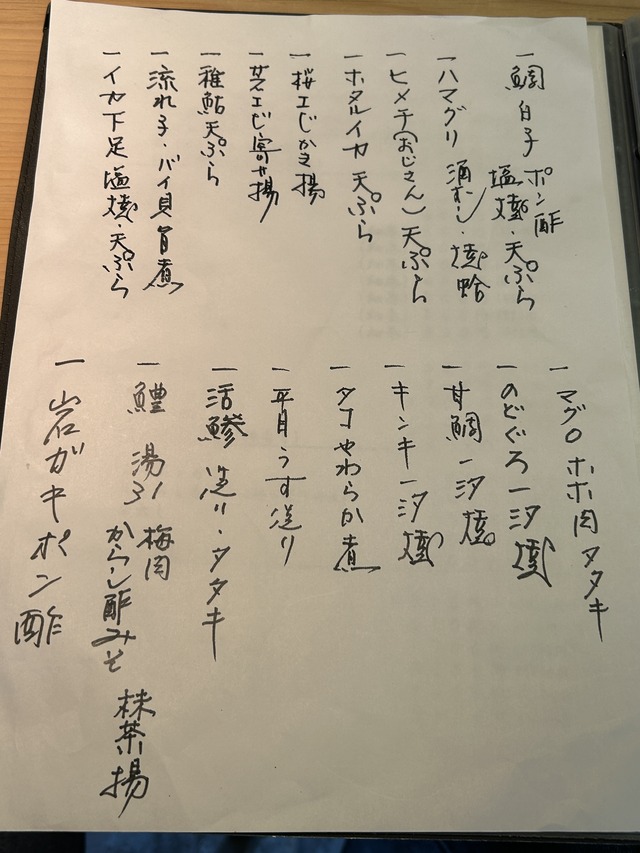 一 鯛白子 ポン酢 塩焼・天ぷら
一 ハマグリ 酒むし・焼蛤
一 ヒメチ(おじさん)天ぷら
一 ホタルイカ 天ぷら
一 桜エビかき揚
一 芝エビ寄せ揚
一 稚鮎天ぷら
一 流れ子・バイ貝旨煮
一 イカ下足塩焼・天ぷら
一 マグロホホ肉タタキ
一 のどぐろ一汐焼
一 甘鯛一汐焼
一 キンキ一汐焼
一 タコやわらか煮
一 平目うす造り
一 活鯵 造り・タタキ
一 鱧 湯引 梅肉 からし酢みそ 抹茶揚
一 岩ガキポン酢